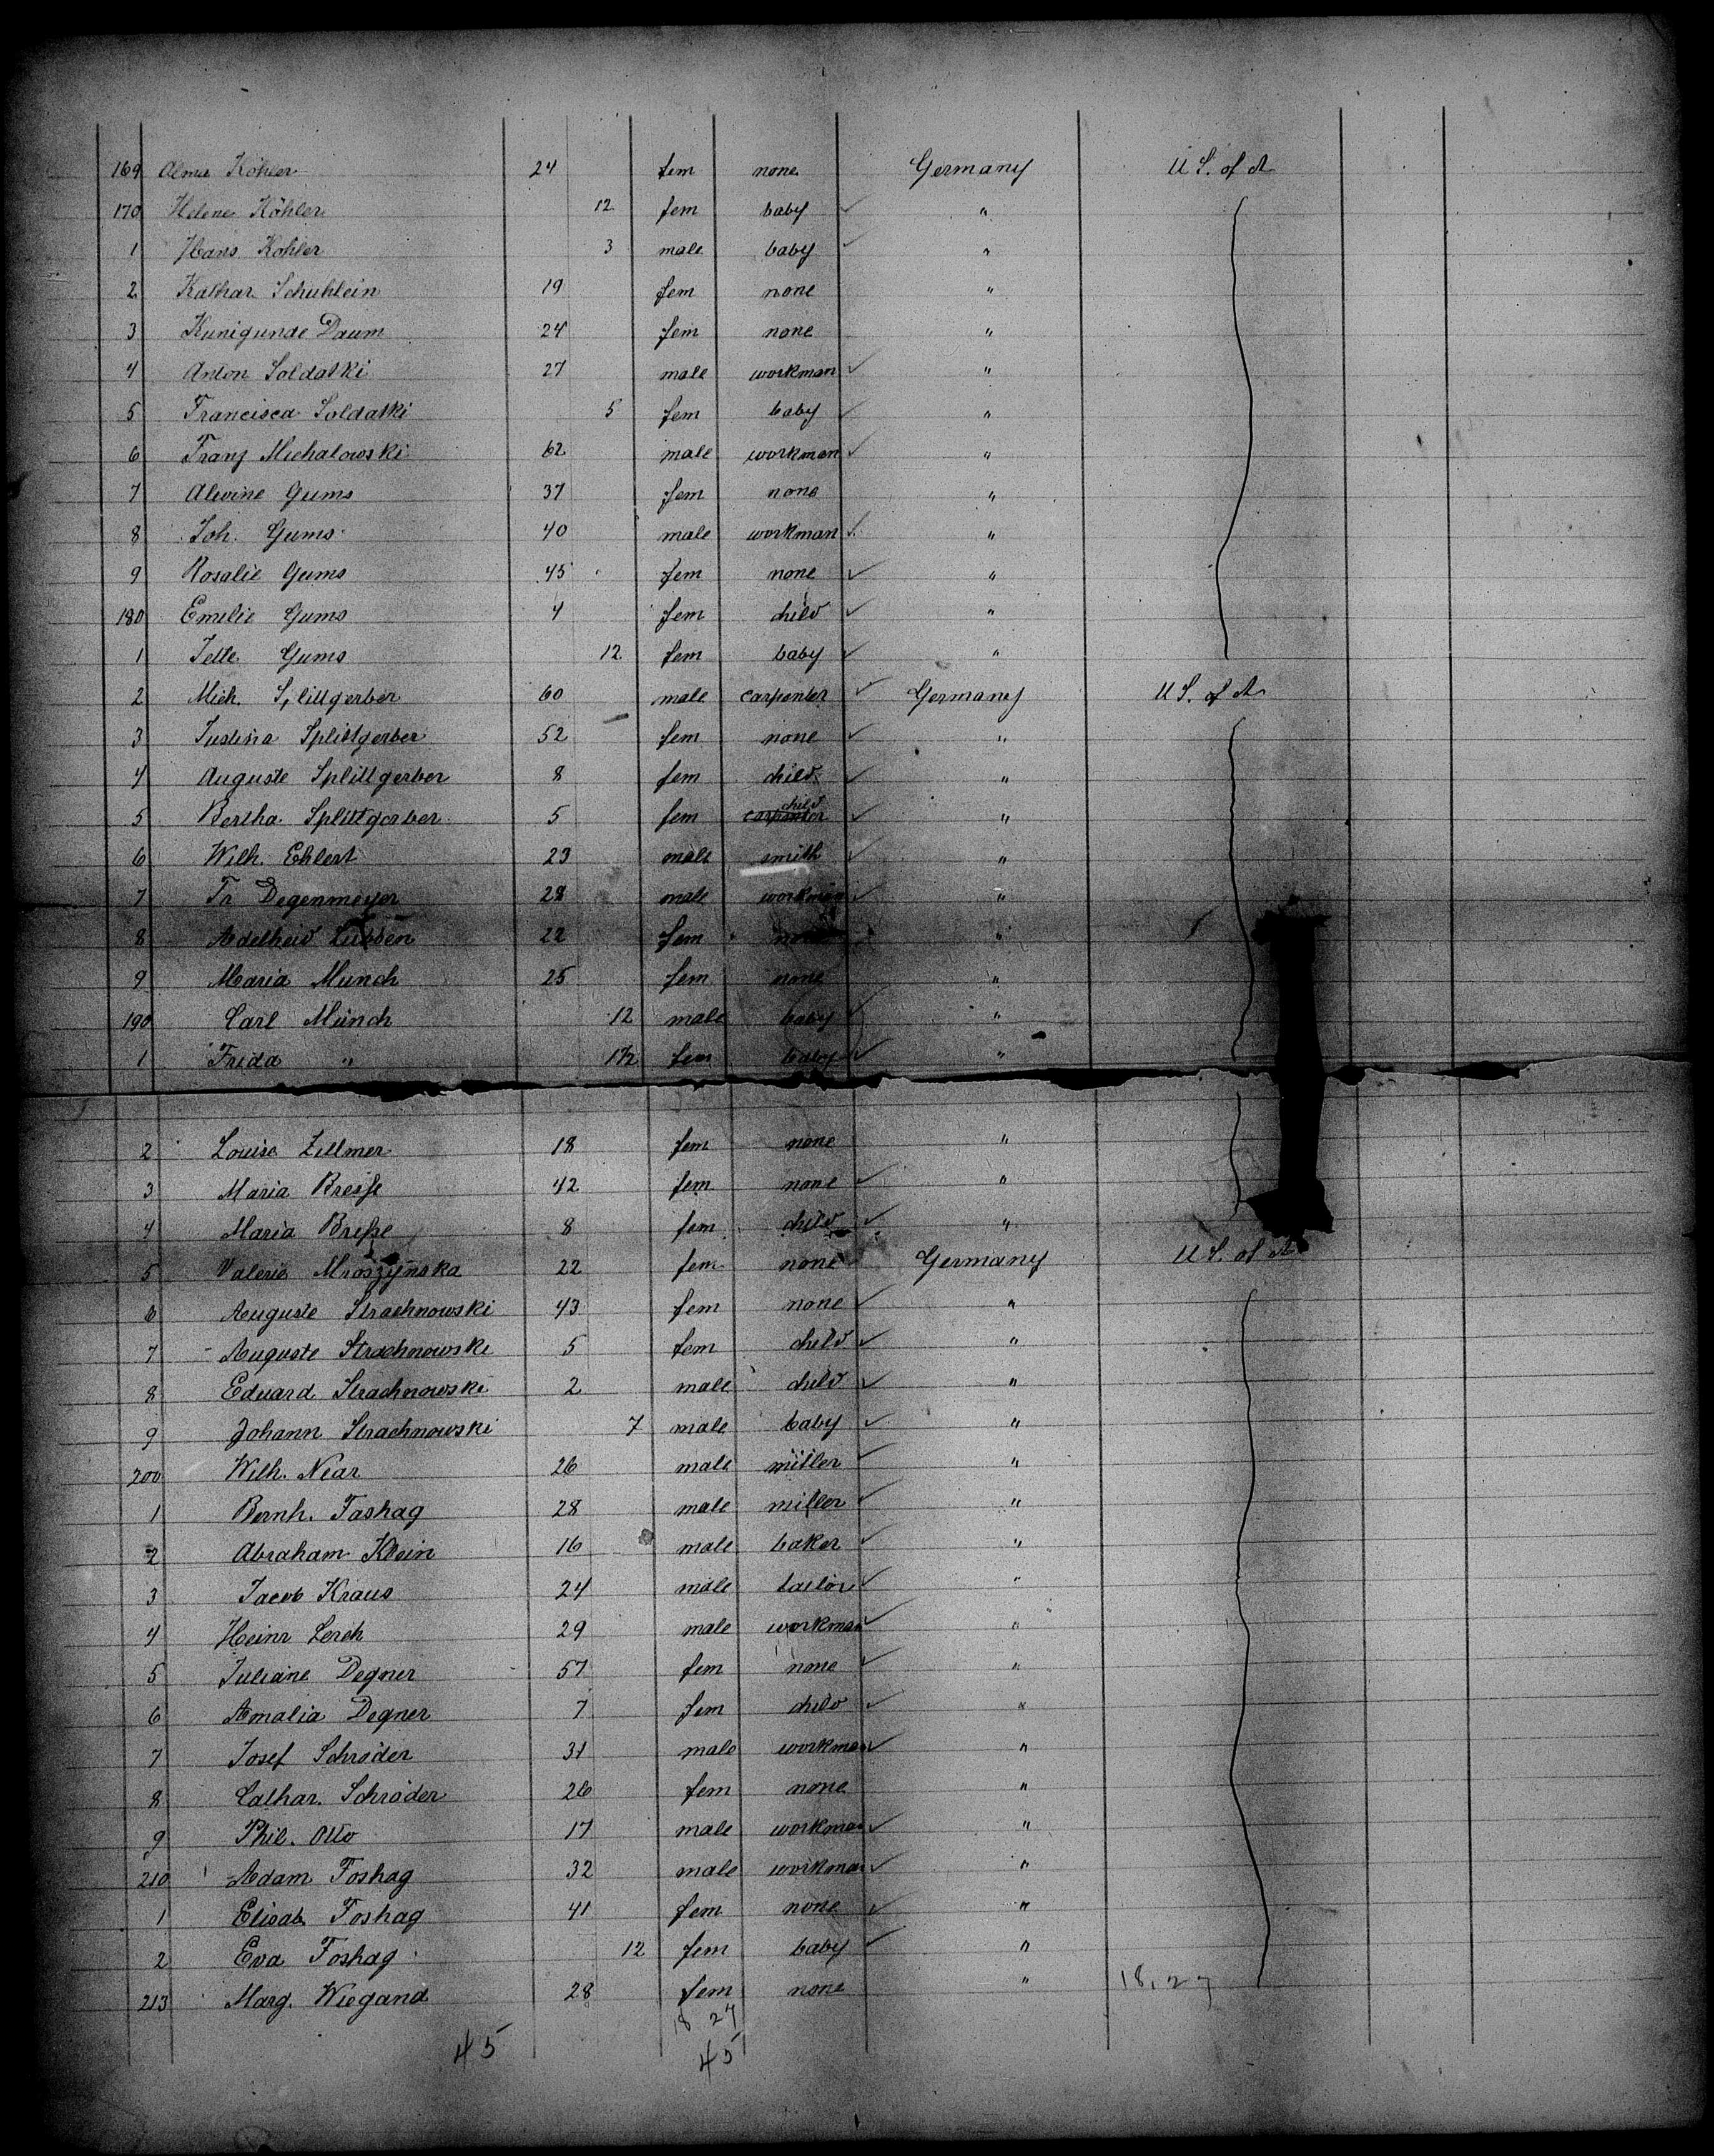 169 Alma Köhler 24 fem none Germany U S. of A
170 Helene Köhler 12 fem baby ✓ "
1 Hans Köhler 3 male baby ✓ "
2 Kathar. Schuhlein 19 fem none "
3 Kunigunde Daum 24 fem none "
4 Anton Soldatki 27 male workman ✓ "
5 Francisca Soldatki 5 fem baby ✓ "
6 Franz Michalowski 62 male workman ✓ "
7 Alwine Gums 37 fem none "
8 Joh. Gums 40 male workman ✓ "
9 Rosalie Gums 45 fem none ✓ "
180 Emilie Gums 4 fem child ✓ "
1 Jette Gums 12 fem baby ✓ "
2 Mich. Splittgerber 60 male carpenter ✓ Germany U S. of A
3 Justina Splittgerber 52 fem none ✓ "
4 Auguste Splittgerber 8 fem child ✓ "
5 Bertha Splittgerber 5 fem carpenter child ✓ "
6 Wilh. Ehlert 23 male smith ✓ "
7 Fr. Degenmeyer 28 male workman ✓ "
8 Adelheid 22 fem none "
9 Maria Münch 25 fem none "
190 Carl Münch 12 male baby ✓ "
1 Frida " 1½ fem baby ✓ "
2 Louise Zillmer 18 fem none "
3 Maria Bresse 42 fem none ✓ "
4 Maria Breße 8 fem child ✓ "
5 Valerie Mroszynska 22 fem none Germany U S. of A
6 Auguste Strachnowski 43 fem none ✓ "
7 Auguste Strachnowski 5 fem child ✓ "
8 Eduard Strachnowski 2 male child ✓ "
9 Johann Strachnowski 7 male baby ✓ "
200 Wilh. Near 26 male miller ✓ "
1 Bernh. Fashag 28 male miller ✓ "
2 Abraham Klein 16 male baker ✓ "
3 Jacob Kraus 24 male tailor ✓ "
4 Heinr Lerch 29 male workman ✓ "
5 Juliane Degner 57 fem none ✓ "
6 Amalia Degner 7 fem child ✓ "
7 Josef Schröder 31 male workman ✓ "
8 Cathar. Schröder 26 fem none "
9 Phil. Otto 17 male workman ✓ "
210 Adam Foshag 32 male workman ✓ "
1 Elisab. Foshag 41 fem none ✓ "
2 Eva Foshag 12 fem baby ✓ "
213 Marg. Wiegand 28 fem none " 18,27
18 27
45 45